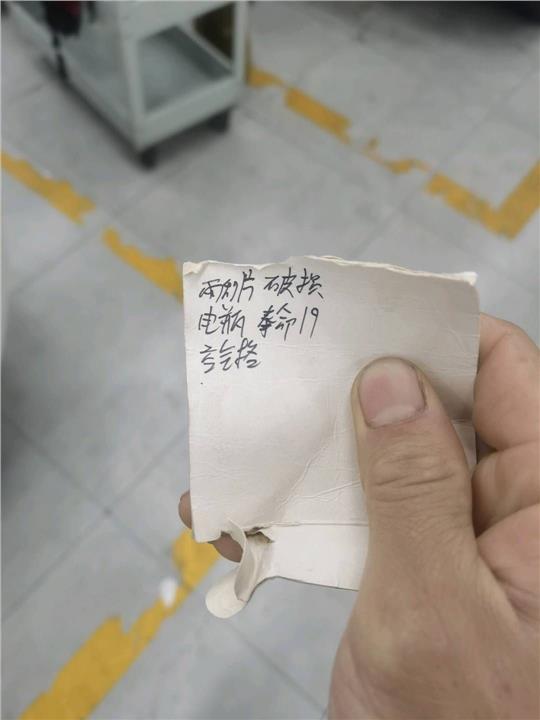 雨刮片 破损
电瓶 寿命19
空气格